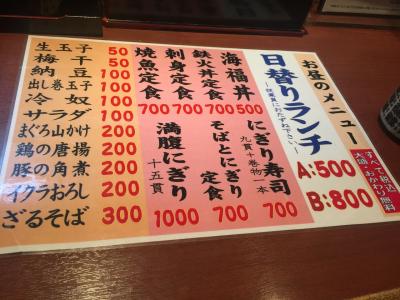 お昼のメニュー
日替りランチ
～従業員におたずね下さい～
A:500
B:800
すべて税込
大盛・おかわり無料
海福丼
500
鉄火丼定食
700
刺身定食
700
焼魚定食
700
にぎり寿司
九貫+巻物一本
700
そばとにぎり定食
700
満腹にぎり
十五貫
1000
生玉子 50
梅干 50
納豆 100
出し巻玉子 100
冷奴 100
サラダ 100
まぐろ山かけ 200
鶏の唐揚 200
豚の角煮 200
イクラおろし 200
ざるそば 300